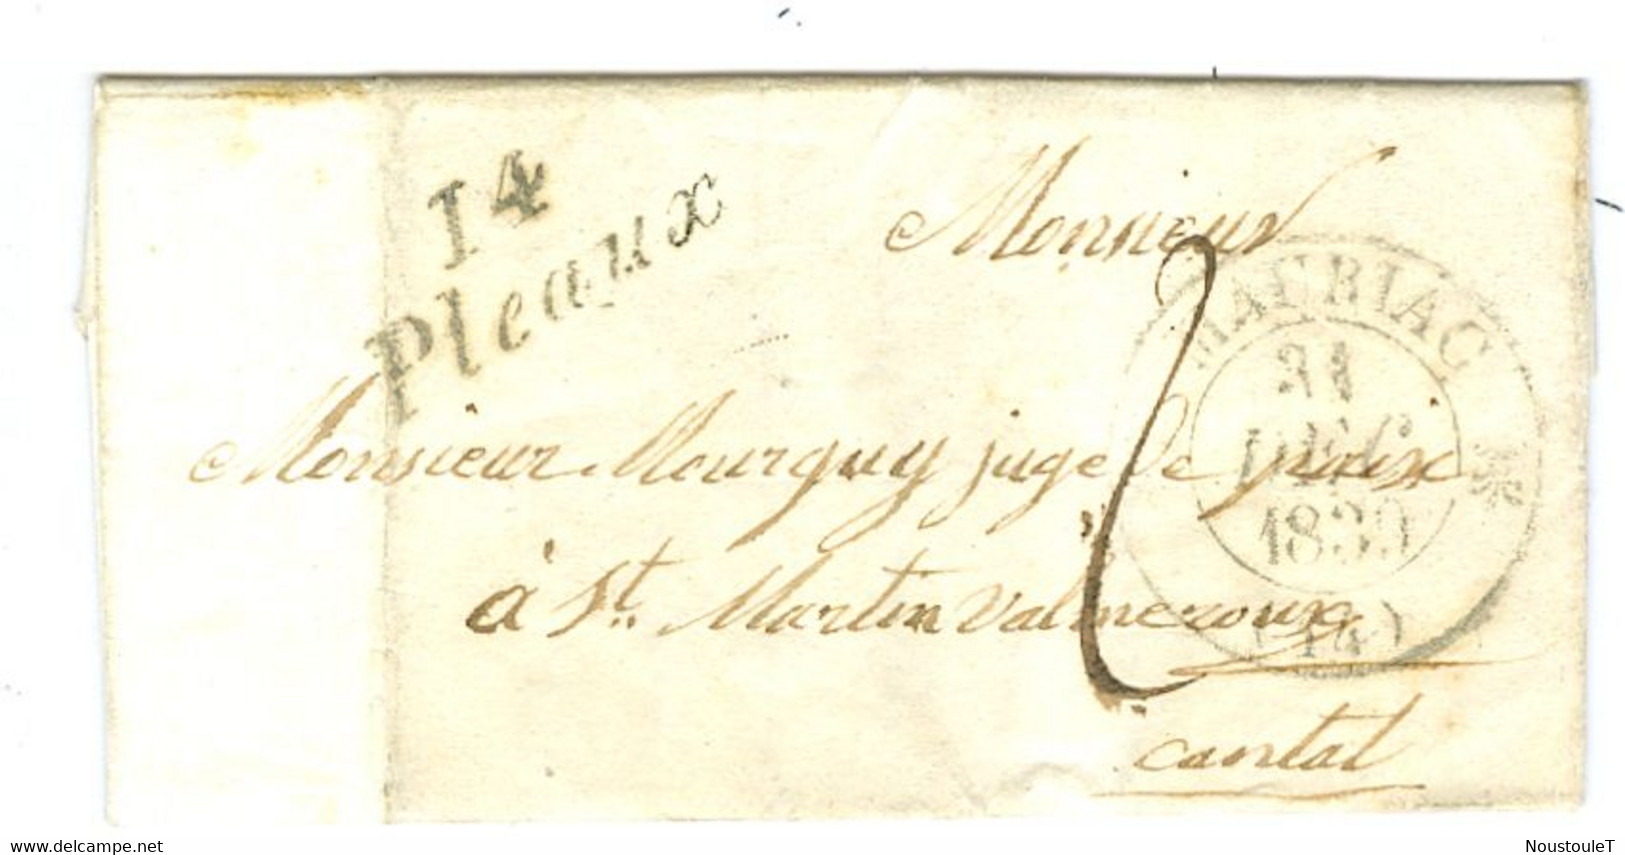 14
Pleaux
Monsieur
MAURIAC
31
DEC
1839
(14)
Monsieur Mourguy juge de paix
à St. Martin Valmeroux
cantal
2
www.delcampe.net
NoustouleT